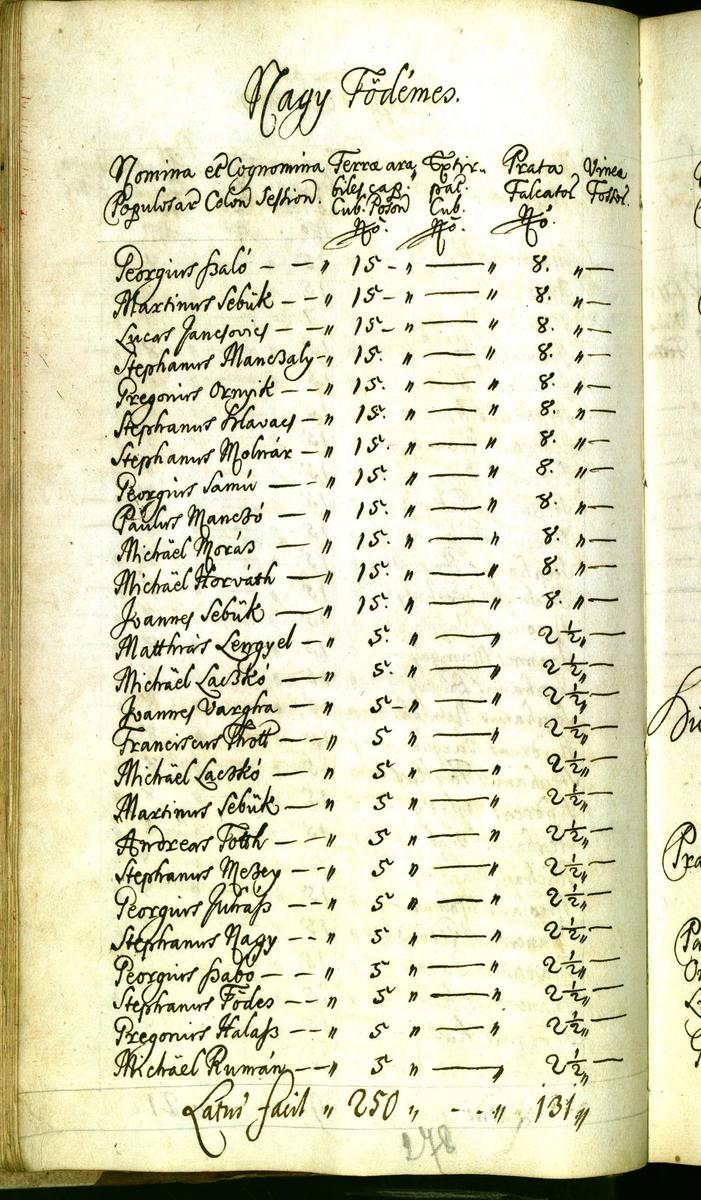 Nagy Födémes.
Nomina et Cognomina Terræ ara„ Extir„ Prata Vinea
Populosar Colon Session. biles cap: pat. Falcator Fossor
Cub. Poson Cub.
No. No. No.
Georgius Szaló — — „ 15 – „ — „ 8. „ —
Martinus Sebük — — „ 15 – „ — „ 8. „ —
Lucas Jancsovics — — „ 15 – „ — „ 8. „ —
Stephanus Manczaly – „ 15. „ — „ 8. „ —
Gregorius Ornyik — — „ 15. „ — „ 8. „ —
Stephanus Hlavacs — „ 15. „ — „ 8. „ —
Stephanus Molnár — „ 15. „ — „ 8. „ —
Georgius Samú — — „ 15. „ — „ 8. „ —
Paulus Manczó — „ 15. „ — „ 8. „ —
Michäel Morász — „ 15. „ — „ 8. „ —
Michäel Horváth — „ 15. „ — „ 8. „ —
Joannes Sebük — „ 15. „ — „ 8. „ —
Matthias Lengyel — „ 5. „ — „ 2 1/2 „ —
Michäel Laczkó — „ 5. „ — „ 2 1/2 „ —
Joannes Vargha „ 5 – „ — „ 2 1/2 „ —
Franciscus Thott — — „ 5 „ — „ 2 1/2 „ —
Michäel Laczkó — „ 5 „ — „ 2 1/2 „ —
Martinus Sebük — „ 5 „ — „ 2 1/2 „ —
Andreas Totth — — „ 5 „ — „ 2 1/2 „ —
Stephanus Mezey — — „ 5 „ — „ 2 1/2 „ —
Georgius Juhász — — „ 5 „ — „ 2 1/2 „ —
Stephanus Nagy — — „ 5 „ — „ 2 1/2 „ —
Georgius Szabó — — „ 5 „ — „ 2 1/2 „ —
Stephanus Födes — — „ 5 „ — „ 2 1/2 „ —
Gregorius Halász — — „ 5 „ — „ 2 1/2 „ —
Michäel Rumán — — „ 5 „ — „ 2 1/2 „ —
Latus facit „ 250 „ - - „ 131 „
278